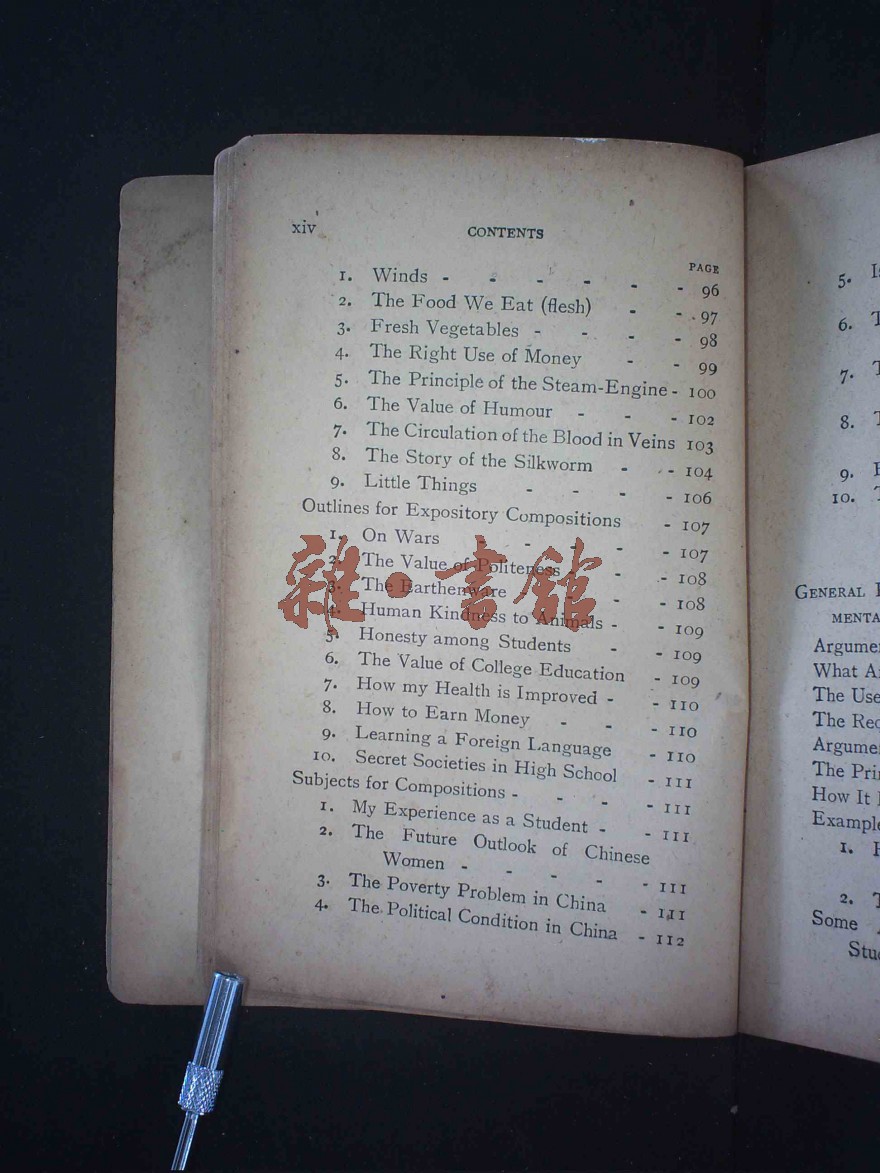 xiv CONTENTS
PAGE
1. Winds - - - - - - 96
2. The Food We Eat (flesh) - - 97
3. Fresh Vegetables - - - - 98
4. The Right Use of Money - - 99
5. The Principle of the Steam-Engine - 100
6. The Value of Humour - - - 102
7. The Circulation of the Blood in Veins 103
8. The Story of the Silkworm - - 104
9. Little Things - - - - 106
Outlines for Expository Compositions - 107
1. On Wars - - - - - 107
2. The Value of Politeness - - 108
3. The Earthenware - - - 108
4. Human Kindness to Animals - - 109
5. Honesty among Students - - 109
6. The Value of College Education - 109
7. How my Health is Improved - - 110
8. How to Earn Money - - - 110
9. Learning a Foreign Language - 110
10. Secret Societies in High School - 111
Subjects for Compositions - - - - 111
1. My Experience as a Student - - 111
2. The Future Outlook of Chinese
Women - - - - - 111
3. The Poverty Problem in China - 111
4. The Political Condition in China - 112
雜·書館
5.
6.
7.
8.
9.
10.
GENERAL
MENTA
Argumen
What A
The Use
The
Argumen
The Pri
How It
Example
1.
2.
Some
Stu